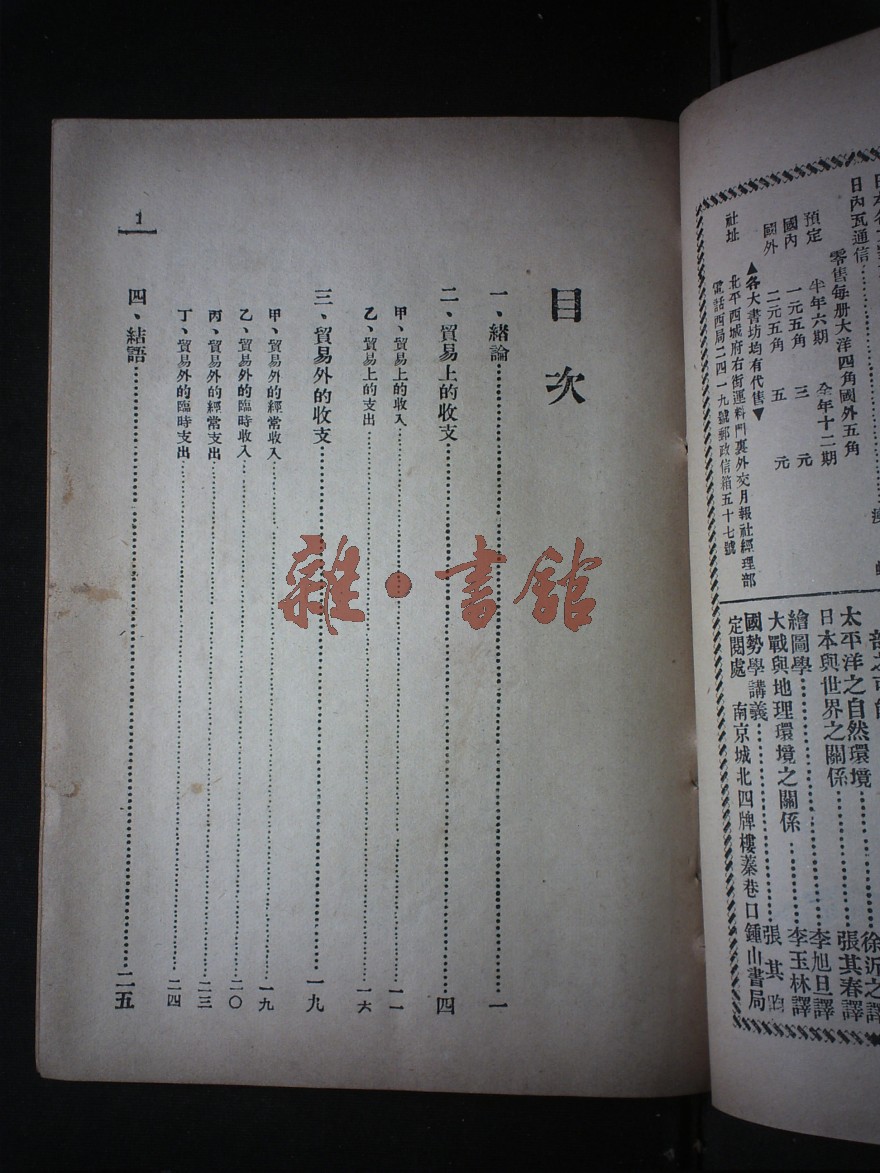 日內瓦通信
零售每册大洋四角國外五角
預定 半年六期 全年十二期
國內 一元五角 三元
國外 二元五角 五元
▲各大書坊均有代售▼
社址 北平西城府右街運料門裏外交月報社經理部
電話西局二四一九號郵政信箱五十七號
徐近之譯
太平洋之自然環境……張其春譯
日本與世界之關係……李旭旦譯
繪圖學……李玉林譯
大戰與地理環境之關係……張其昀
國勢學講義
定閱處 南京城北四牌樓蓁巷口鍾山書局
目次
一、緒論……一
二、貿易上的收支……四
甲、貿易上的收入……一一
乙、貿易上的支出……一六
三、貿易外的收支……一九
甲、貿易外的經常收入……一九
乙、貿易外的臨時收入……二〇
丙、貿易外的經常支出……二三
丁、貿易外的臨時支出……二四
四、結語……二五
1
雜·書館